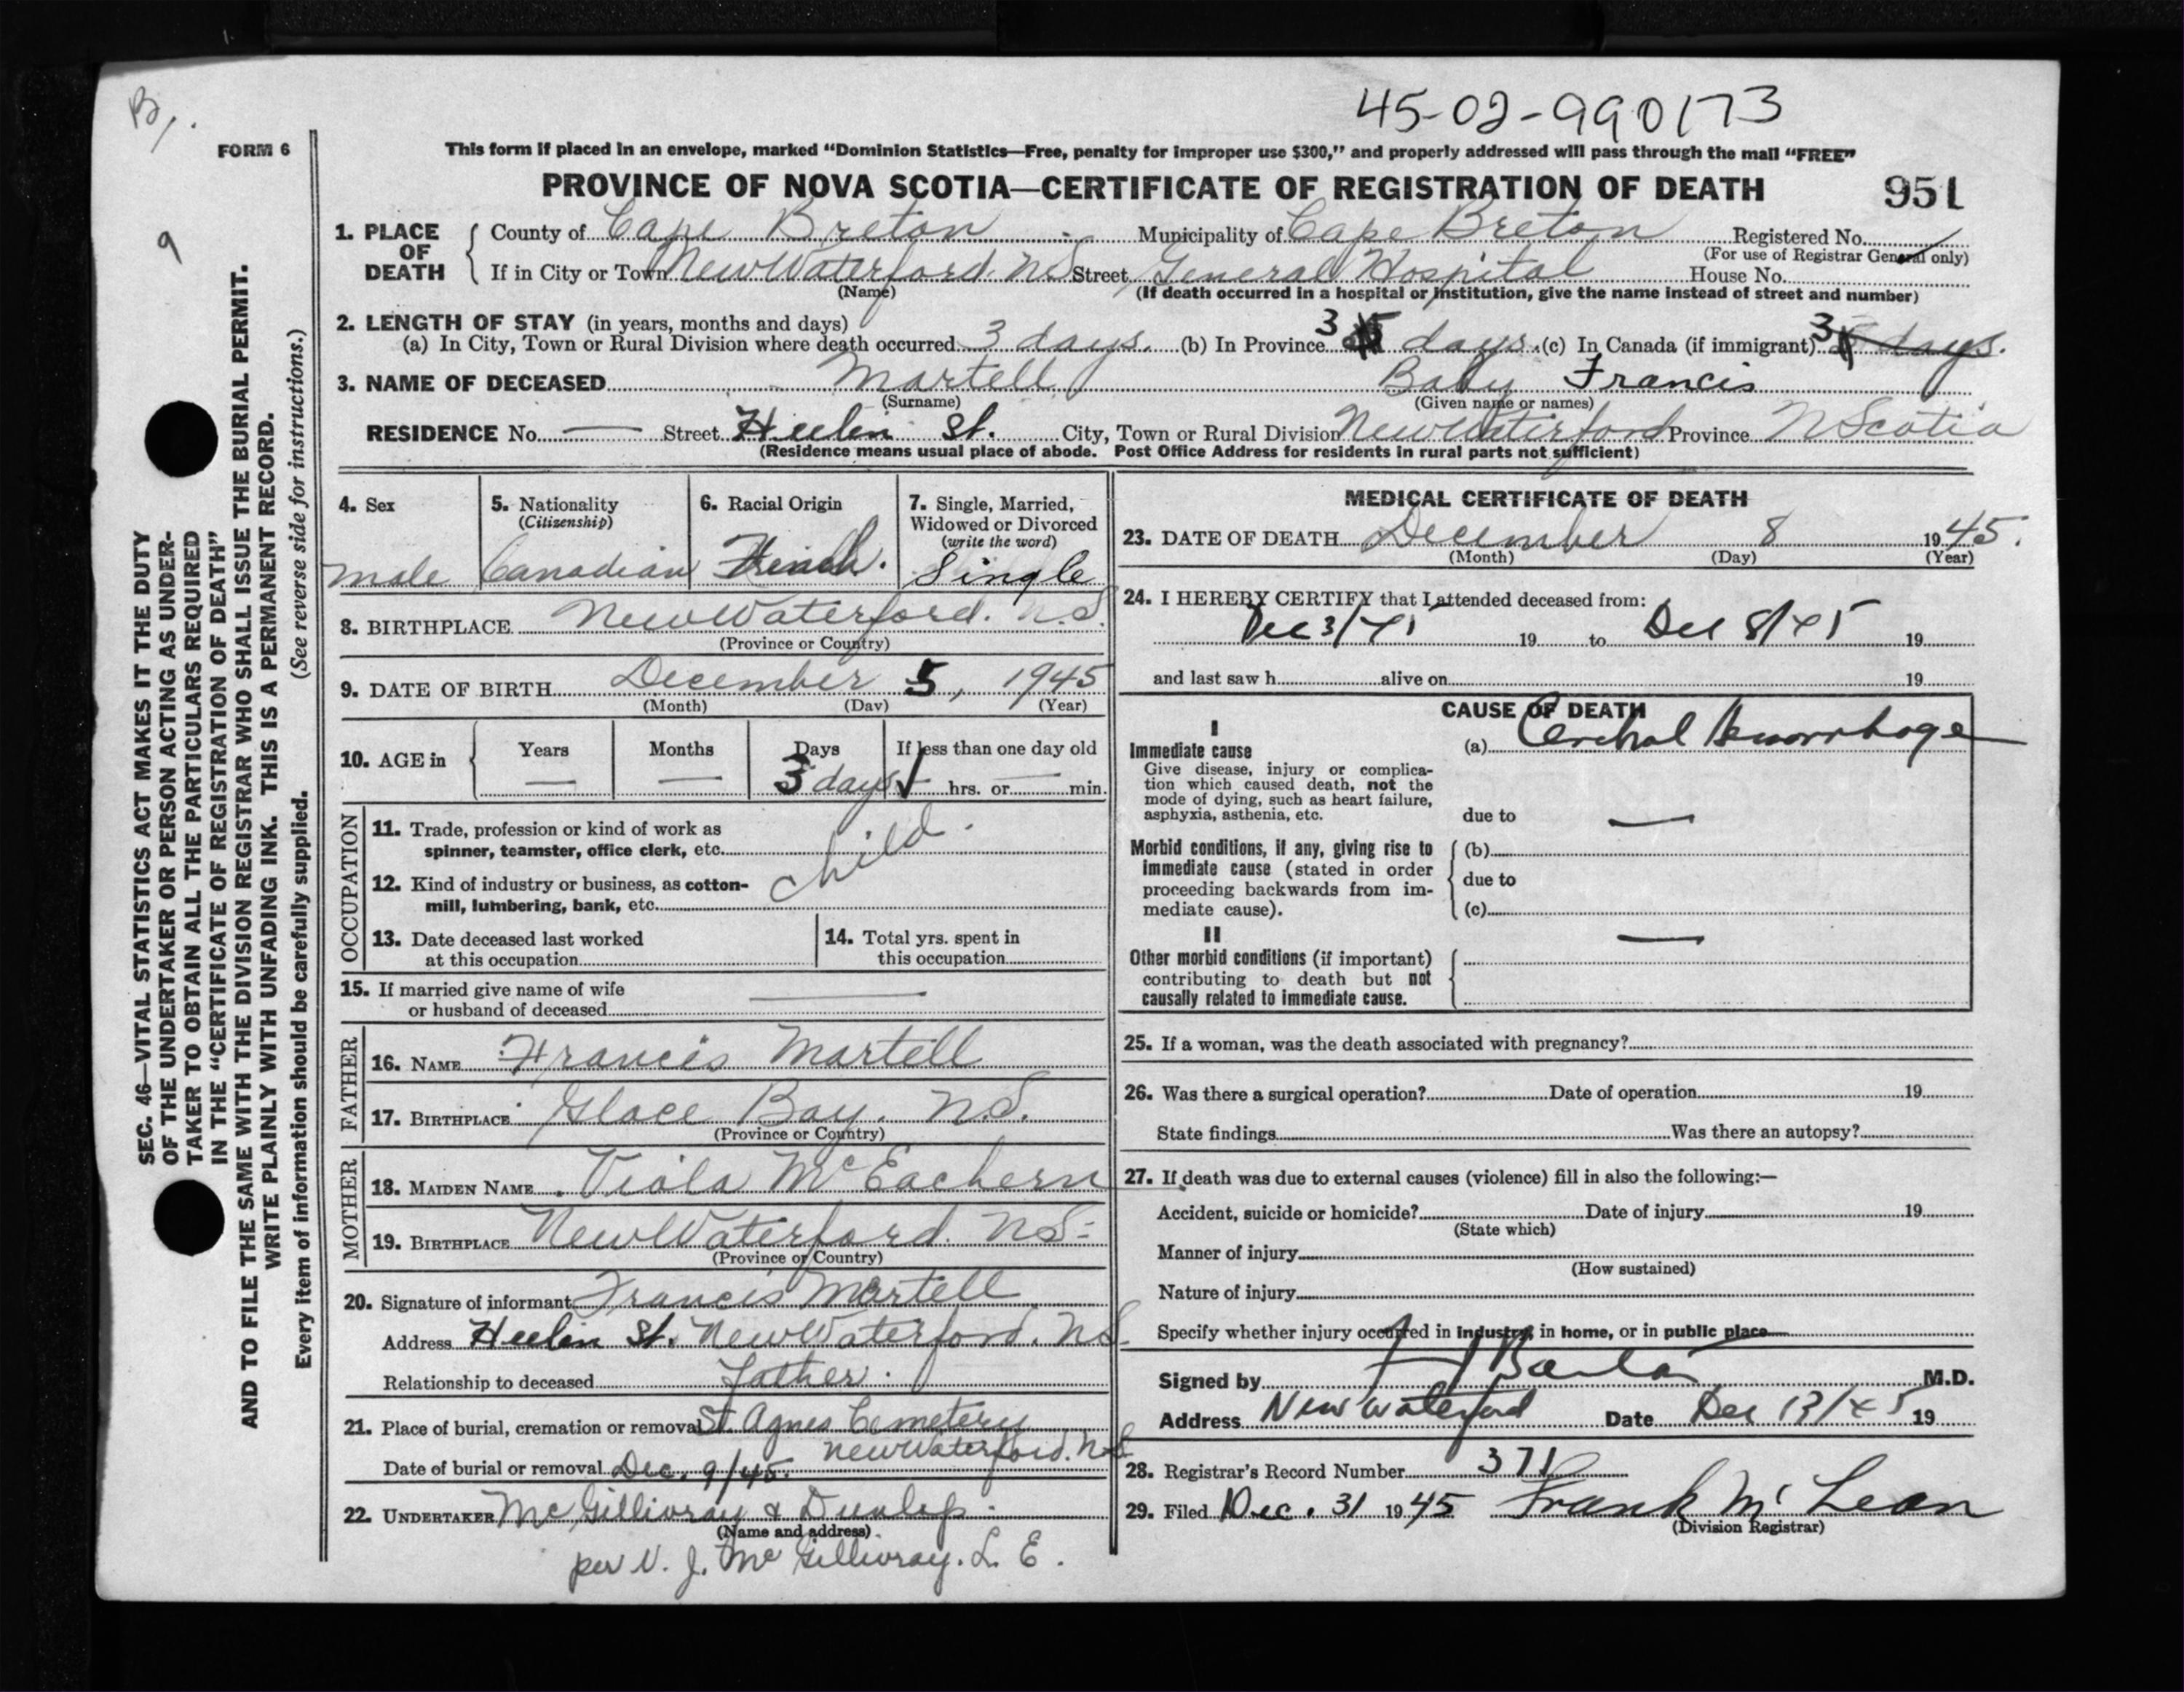 45-02-990173
B/.
FORM 6
This form if placed in an envelope, marked "Dominion Statistics—Free, penalty for improper use $300," and properly addressed will pass through the mail "FREE"
PROVINCE OF NOVA SCOTIA—CERTIFICATE OF REGISTRATION OF DEATH 951
9
SEC. 46—VITAL STATISTICS ACT MAKES IT THE DUTY
OF THE UNDERTAKER OR PERSON ACTING AS UNDER-
TAKER TO OBTAIN ALL THE PARTICULARS REQUIRED
IN THE "CERTIFICATE OF REGISTRATION OF DEATH"
AND TO FILE THE SAME WITH THE DIVISION REGISTRAR WHO SHALL ISSUE THE BURIAL PERMIT.
WRITE PLAINLY WITH UNFADING INK. THIS IS A PERMANENT RECORD.
Every item of information should be carefully supplied. (See reverse side for instructions.)
1. PLACE OF DEATH County of Cape Breton Municipality of Cape Breton Registered No.
(For use of Registrar General only)
If in City or Town New Waterford. N.S Street General Hospital House No.
(Name) (If death occurred in a hospital or institution, give the name instead of street and number)
2. LENGTH OF STAY (in years, months and days)
(a) In City, Town or Rural Division where death occurred 3 days. (b) In Province 3 days. (c) In Canada (if immigrant) 3 days.
3. NAME OF DECEASED Martell Baby Francis
(Surname) (Given name or names)
RESIDENCE No. — Street Heelin St. City, Town or Rural Division New Waterford Province N Scotia
(Residence means usual place of abode. Post Office Address for residents in rural parts not sufficient)
4. Sex male
5. Nationality (Citizenship) Canadian
6. Racial Origin French.
7. Single, Married, Widowed or Divorced (write the word) Single
8. BIRTHPLACE New Waterford. N.S.
(Province or Country)
9. DATE OF BIRTH December 5, 1945
(Month) (Day) (Year)
10. AGE in Years — Months — Days 3 days If less than one day old hrs. or — min.
OCCUPATION
11. Trade, profession or kind of work as
spinner, teamster, office clerk, etc. child.
12. Kind of industry or business, as cotton-
mill, lumbering, bank, etc.
13. Date deceased last worked
at this occupation
14. Total yrs. spent in
this occupation
15. If married give name of wife
or husband of deceased —
FATHER
16. NAME Francis Martell
17. BIRTHPLACE Glace Bay. N.S.
(Province or Country)
MOTHER
18. MAIDEN NAME Viola McEachern
19. BIRTHPLACE New Waterford. N.S.
(Province or Country)
20. Signature of informant Francis Martell
Address Heelin St. New Waterford. N.S.
Relationship to deceased Father.
21. Place of burial, cremation or removal St. Agnes Cemetery
New Waterford. N.S
Date of burial or removal Dec. 9/45.
22. UNDERTAKER McGillivray & Dunlop.
(Name and address)
per V. J. McGillivray. L. E.
MEDICAL CERTIFICATE OF DEATH
23. DATE OF DEATH December 8 1945.
(Month) (Day) (Year)
24. I HEREBY CERTIFY that I attended deceased from:
Dec 3/45 19 to Dec 8/45 19
and last saw h alive on 19
CAUSE OF DEATH
I
Immediate cause (a) Cerebral Hemorrhage
Give disease, injury or complica-
tion which caused death, not the
mode of dying, such as heart failure,
asphyxia, asthenia, etc.
due to —
Morbid conditions, if any, giving rise to
immediate cause (stated in order
proceeding backwards from im-
mediate cause).
(b)
due to
(c)
II
Other morbid conditions (if important)
contributing to death but not
causally related to immediate cause.
—
25. If a woman, was the death associated with pregnancy?
26. Was there a surgical operation? Date of operation 19
State findings Was there an autopsy?
27. If death was due to external causes (violence) fill in also the following:—
Accident, suicide or homicide? Date of injury 19
(State which)
Manner of injury
(How sustained)
Nature of injury
Specify whether injury occurred in industry, in home, or in public place
Signed by M.D.
Address New Waterford Date Dec 13/45 19
28. Registrar's Record Number 371
29. Filed Dec. 31 1945 Frank McLean
(Division Registrar)